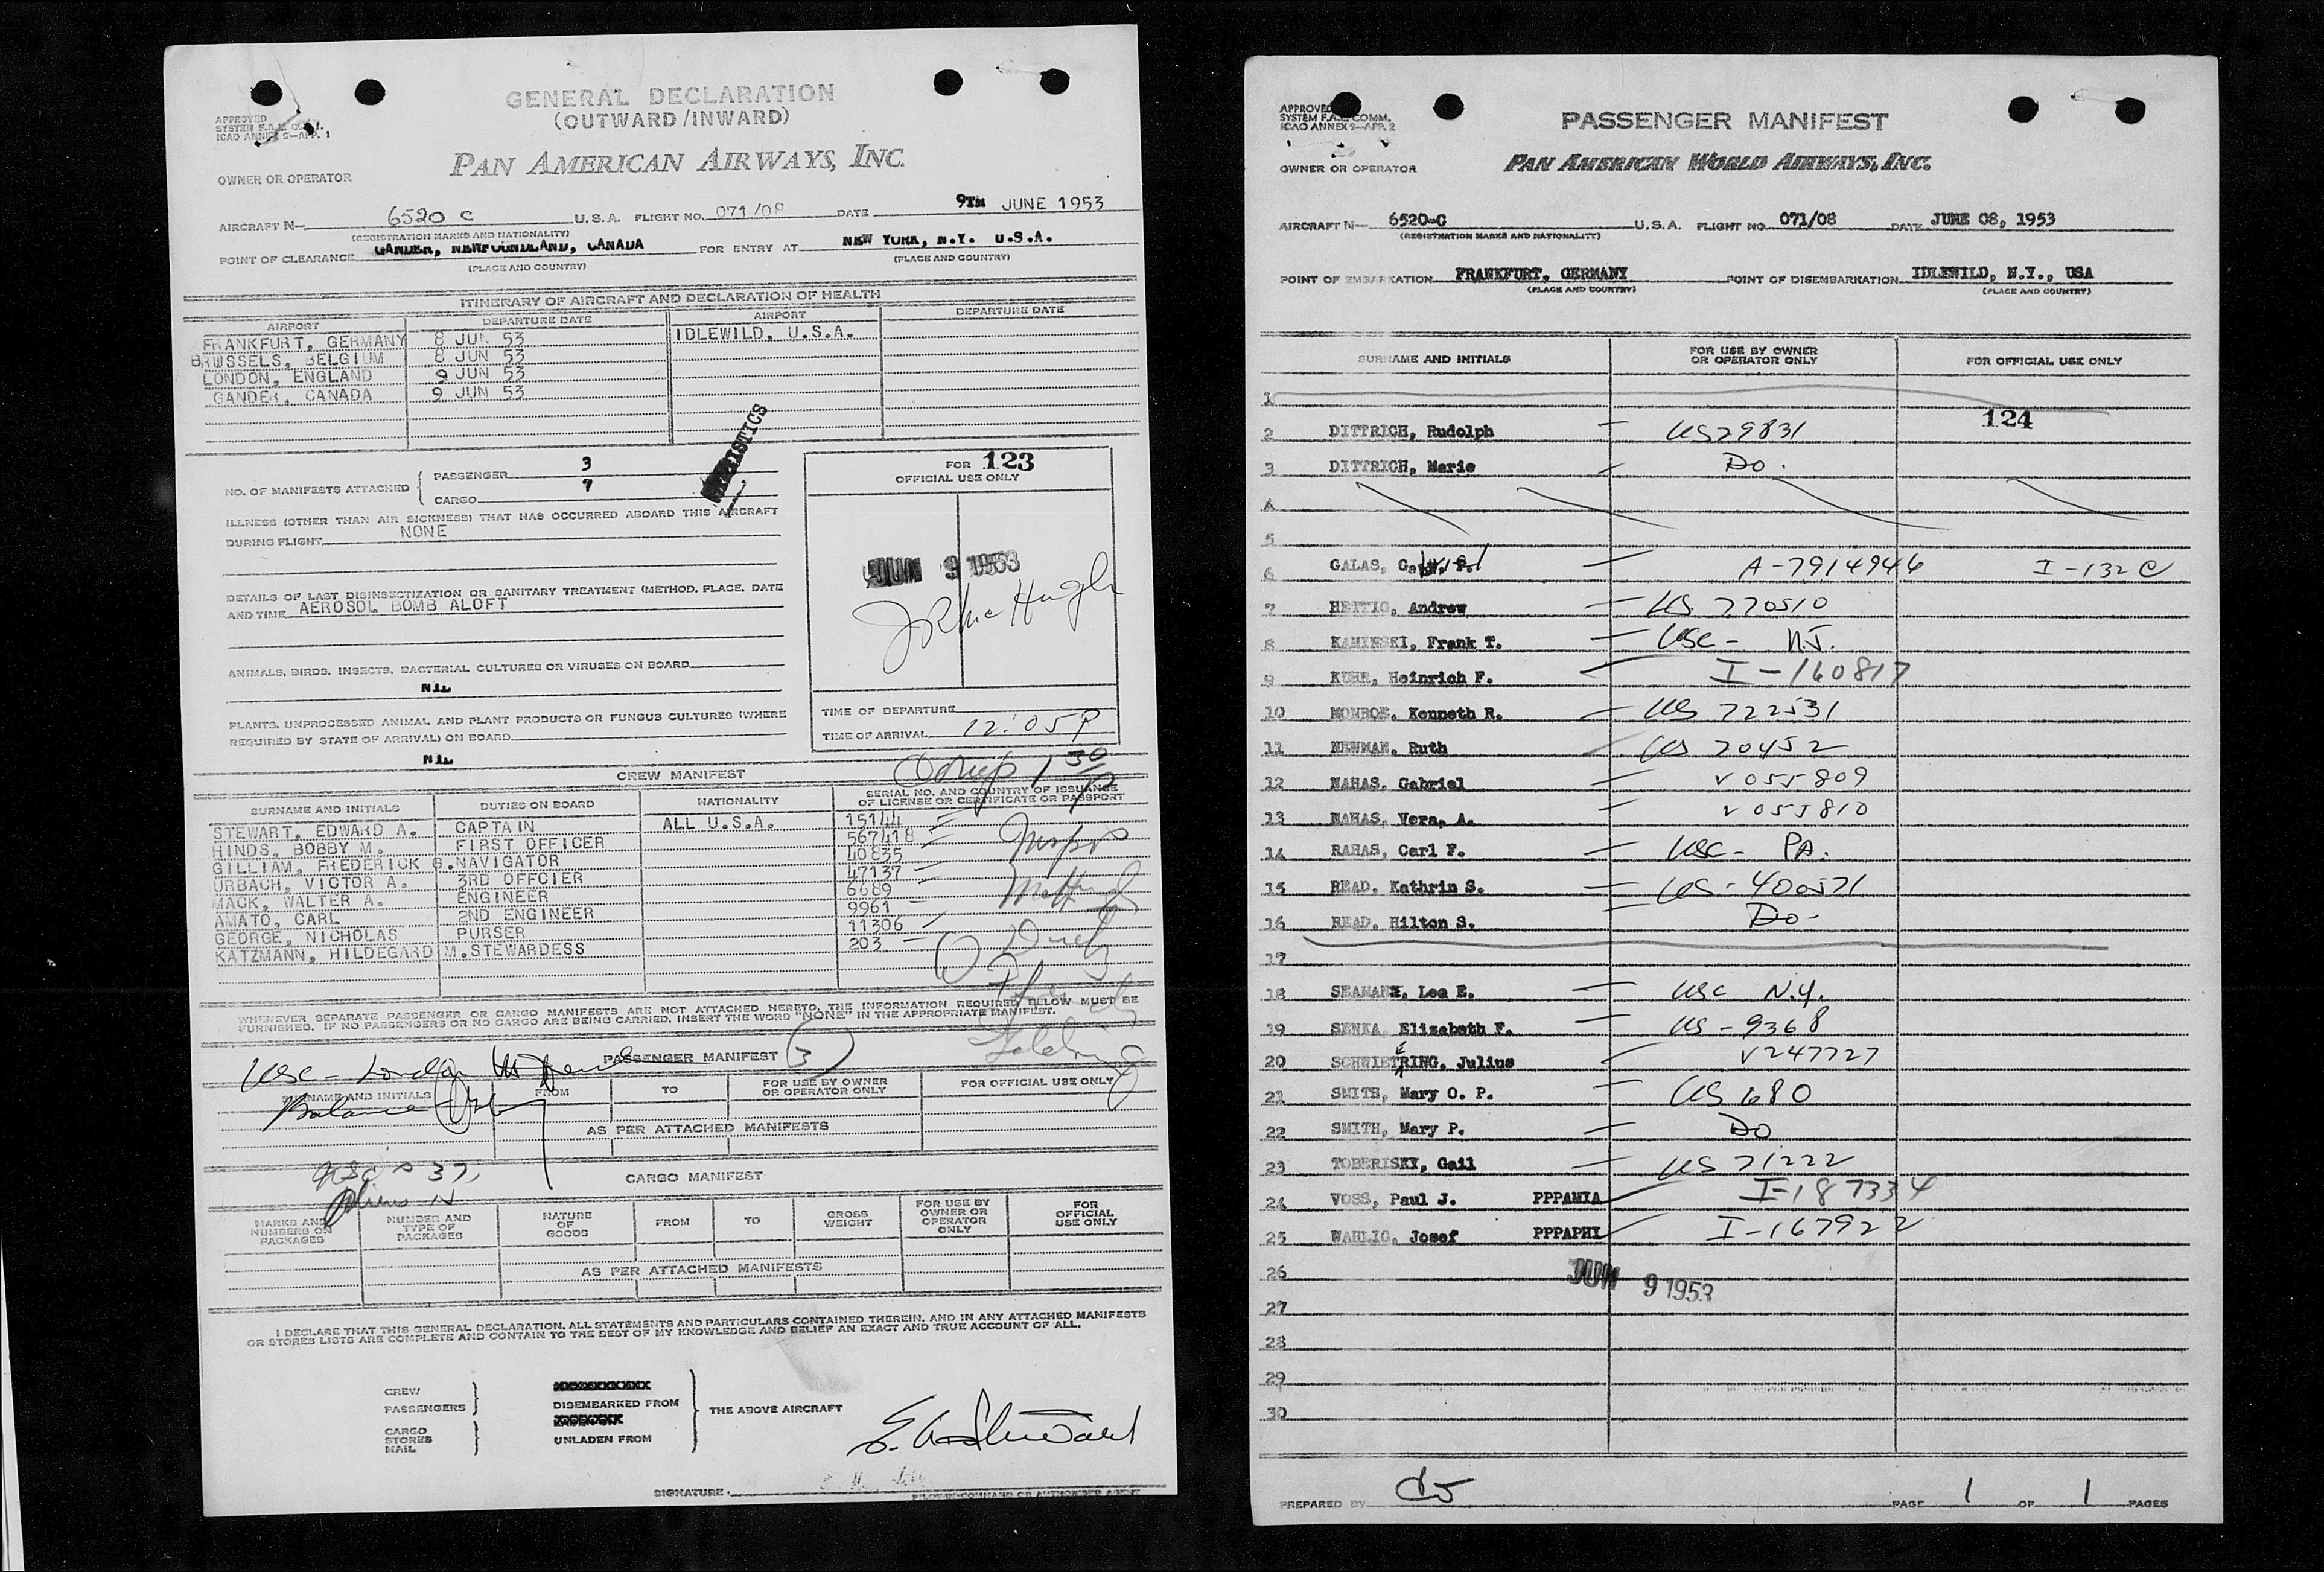 GENERAL DECLARATION
(OUTWARD/INWARD)
APPROVED
SYSTEM F.A.L. COMM.
ICAO ANNEX 9—APP. 1
PAN AMERICAN AIRWAYS, INC.
OWNER OR OPERATOR
AIRCRAFT N— 6520 C U.S.A. FLIGHT NO. 071/08 DATE 9TH JUNE 1953
(REGISTRATION MARKS AND NATIONALITY)
POINT OF CLEARANCE GANDER, NEWFOUNDLAND, CANADA FOR ENTRY AT NEW YORK, N.Y. U.S.A.
(PLACE AND COUNTRY) (PLACE AND COUNTRY)
ITINERARY OF AIRCRAFT AND DECLARATION OF HEALTH
AIRPORT DEPARTURE DATE AIRPORT DEPARTURE DATE
FRANKFURT, GERMANY 8 JUN 53 IDLEWILD, U.S.A.
BRUSSELS, BELGIUM 8 JUN 53
LONDON, ENGLAND 9 JUN 53
GANDER, CANADA 9 JUN 53
NO. OF MANIFESTS ATTACHED PASSENGER 3
CARGO 7
FOR 123
OFFICIAL USE ONLY
ILLNESS (OTHER THAN AIR SICKNESS) THAT HAS OCCURRED ABOARD THIS AIRCRAFT
DURING FLIGHT NONE
JUN 9 1953
DETAILS OF LAST DISINSECTIZATION OR SANITARY TREATMENT (METHOD, PLACE, DATE
AND TIME AEROSOL BOMB ALOFT
ANIMALS, BIRDS, INSECTS, BACTERIAL CULTURES OR VIRUSES ON BOARD
NIL
PLANTS, UNPROCESSED ANIMAL AND PLANT PRODUCTS OR FUNGUS CULTURES (WHERE
REQUIRED BY STATE OF ARRIVAL) ON BOARD
NIL
TIME OF DEPARTURE
TIME OF ARRIVAL 12:05P
CREW MANIFEST
SURNAME AND INITIALS DUTIES ON BOARD NATIONALITY SERIAL NO. AND COUNTRY OF ISSUANCE
OF LICENSE OR CERTIFICATE OR PASSPORT
STEWART, EDWARD A. CAPTAIN ALL U.S.A. 15144
HINDS, BOBBY M. FIRST OFFICER 567418
GILLIAM, FREDERICK G. NAVIGATOR 40835
URBACH, VICTOR A. 3RD OFFCIER 47137
MACK, WALTER A. ENGINEER 6689
AMATO, CARL 2ND ENGINEER 9961
GEORGE, NICHOLAS PURSER 11306
KATZMANN, HILDEGARD M. STEWARDESS 203
WHENEVER SEPARATE PASSENGER OR CARGO MANIFESTS ARE NOT ATTACHED HERETO, THE INFORMATION REQUIRED BELOW MUST BE
FURNISHED. IF NO PASSENGERS OR NO CARGO ARE BEING CARRIED, INSERT THE WORD "NONE" IN THE APPROPRIATE MANIFEST.
PASSENGER MANIFEST 3
USC - London
SURNAME AND INITIALS FROM TO FOR USE BY OWNER
OR OPERATOR ONLY FOR OFFICIAL USE ONLY
Balance
AS PER ATTACHED MANIFESTS
CARGO MANIFEST
MARKS AND
NUMBERS ON
PACKAGES NUMBER AND
TYPE OF
PACKAGES NATURE
OF
GOODS FROM TO GROSS
WEIGHT FOR USE BY
OWNER OR
OPERATOR
ONLY FOR
OFFICIAL
USE ONLY
AS PER ATTACHED MANIFESTS
I DECLARE THAT THIS GENERAL DECLARATION, ALL STATEMENTS AND PARTICULARS CONTAINED THEREIN, AND IN ANY ATTACHED MANIFESTS
OR STORES LISTS ARE COMPLETE AND CONTAIN TO THE BEST OF MY KNOWLEDGE AND BELIEF AN EXACT AND TRUE ACCOUNT OF ALL.
CREW
PASSENGERS DISEMBARKED FROM THE ABOVE AIRCRAFT
CARGO
STORES
MAIL UNLADEN FROM
SIGNATURE. E. A. Stewart
PILOT-IN-COMMAND OR AUTHORIZED AGENT
APPROVED
SYSTEM F.A.L. COMM.
ICAO ANNEX 9—APP. 2
PASSENGER MANIFEST
PAN AMERICAN WORLD AIRWAYS, INC.
OWNER OR OPERATOR
AIRCRAFT N— 6520-C U.S.A. FLIGHT NO. 071/08 DATE JUNE 08, 1953
(REGISTRATION MARKS AND NATIONALITY)
POINT OF EMBARKATION FRANKFURT, GERMANY POINT OF DISEMBARKATION IDLEWILD, N.Y., USA
(PLACE AND COUNTRY) (PLACE AND COUNTRY)
SURNAME AND INITIALS FOR USE BY OWNER
OR OPERATOR ONLY FOR OFFICIAL USE ONLY
1
124
2 DITTRICH, Rudolph US 29831
3 DITTRICH, Marie Do.
4
5
6 GALAS, A-7914946 I-132C
7 HETTIG, Andrew US 770510
8 KAMINSKI, Frank T. USC - N.J.
9 KUHR, Heinrich F. I-160817
10 MONROE, Kenneth R. US 722531
11 NEWMAN, Ruth US 20452
12 NAHAS, Gabriel V055809
13 NAHAS, Vera, A. V055810
14 RAHAS, Carl F. USC - PA.
15 READ, Kathrin S. US-400571
16 READ, Hilton S. Do-
17
18 SEAMANS, Lea E. USC N.Y.
19 SENKA, Elizabeth F. US-9368
20 SCHWIETERING, Julius V247727
21 SMITH, Mary O. P. US 680
22 SMITH, Mary P. Do
23 TOBERISKY, Gail US 71222
24 VOSS, Paul J. PPPAMIA I-187334
25 WAHLIG, Josef PPPAPHI I-167922
26
JUN 9 1953
27
28
29
30
PREPARED BY PAGE 1 OF 1 PAGES